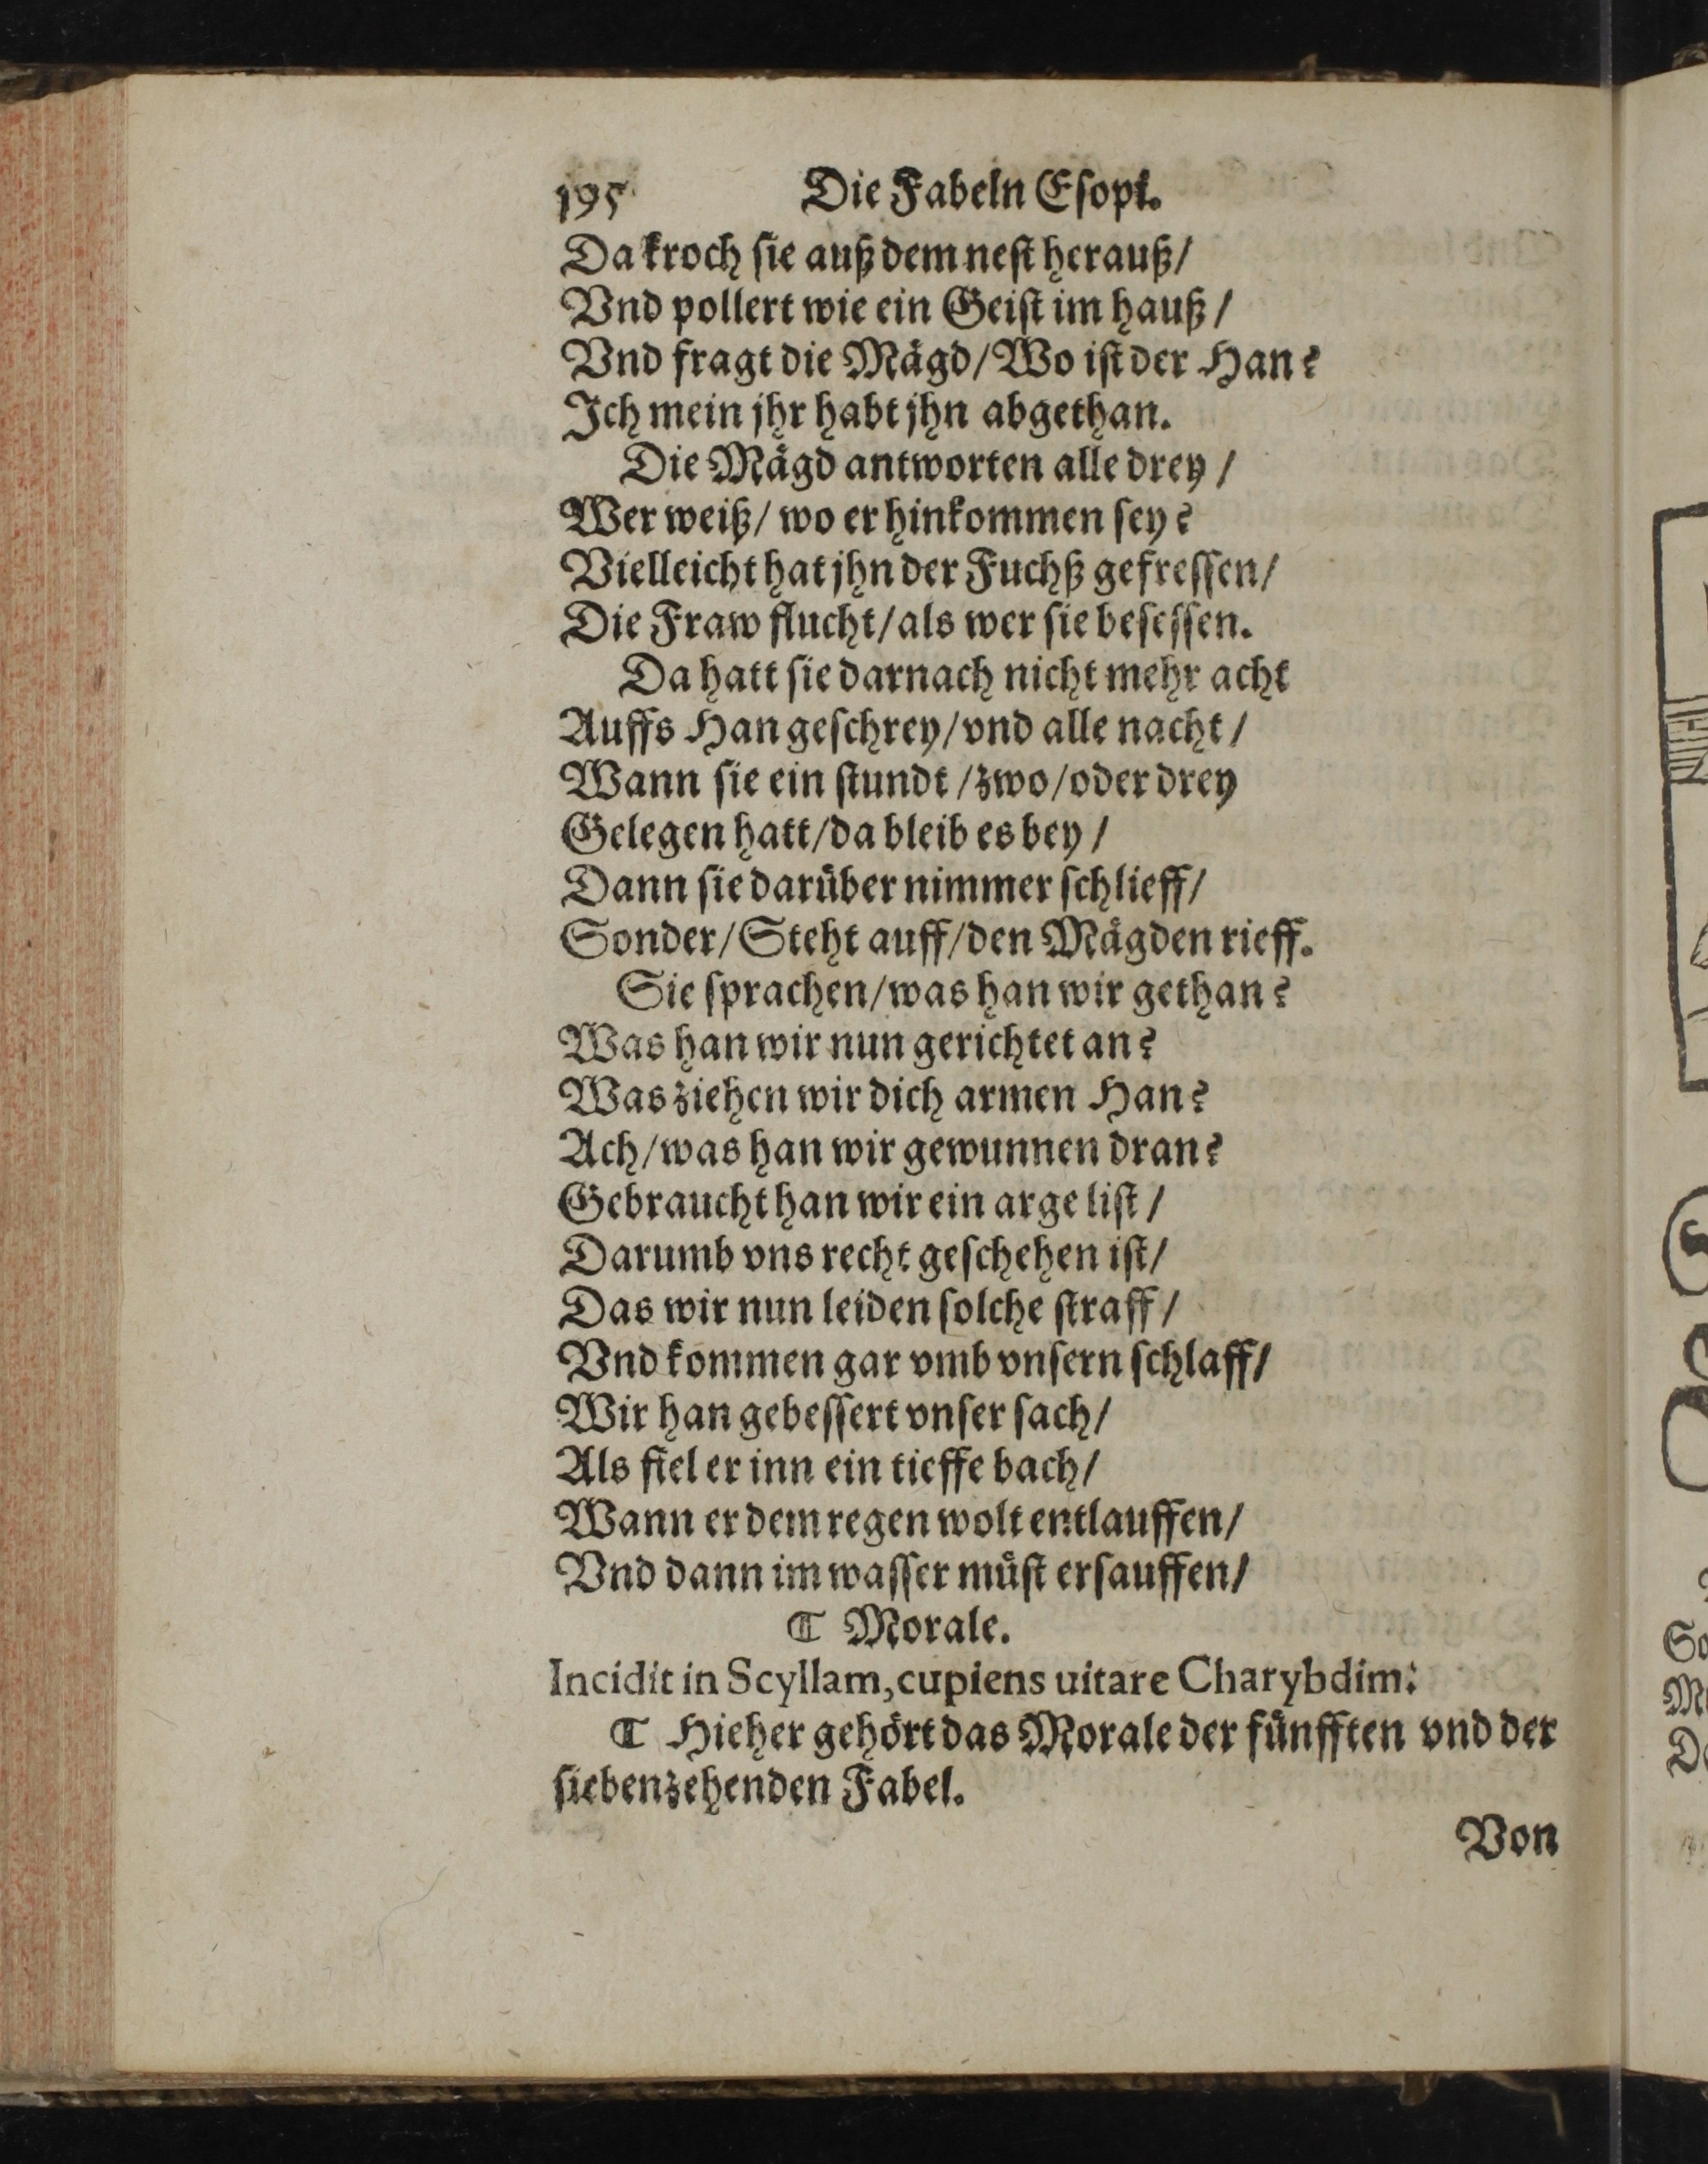 195 Die Fabeln Esopi.
Da kroch sie auß dem nest herauß/
Vnd pollert wie ein Geist im hauß/
Vnd fragt die Mägd/ Wo ist der Han?
Ich mein jhr habt jhn abgethan.
Die Mägd antworten alle drey/
Wer weiß/ wo er hinkommen sey?
Vielleicht hat jhn der Fuchß gefressen/
Die Fraw flucht/ als wer sie besessen.
Da hatt sie darnach nicht mehr acht
Auffs Han geschrey/ vnd alle nacht/
Wann sie ein stundt/ zwo/ oder drey
Gelegen hatt/ da bleib es bey/
Dann sie darüber nimmer schlieff/
Sonder/ Steht auff/ den Mägden rieff.
Sie sprachen/ was han wir gethan?
Was han wir nun gerichtet an?
Was ziehen wir dich armen Han?
Ach/ was han wir gewunnen dran?
Gebraucht han wir ein arge list/
Darumb vns recht geschehen ist/
Das wir nun leiden solche straff/
Vnd kommen gar vmb vnsern schlaff/
Wir han gebessert vnser sach/
Als fiel er inn ein tieffe bach/
Wann er dem regen wolt entlauffen/
Vnd dann im wasser müst ersauffen/
❡ Morale.
Incidit in Scyllam, cupiens uitare Charybdim:
❡ Hieher gehört das Morale der fünfften vnd der
siebenzehenden Fabel.
Von